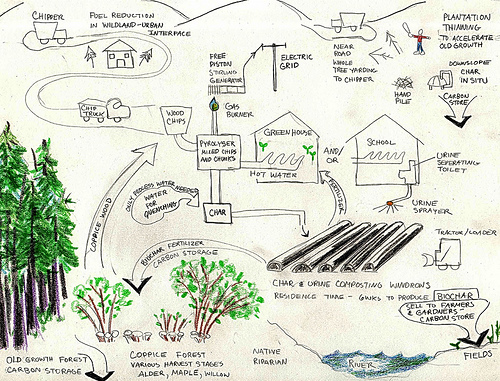 CHIPPER
FUEL REDUCTION
IN WILDLAND-URBAN
INTERFACE
NEAR
ROAD
WHOLE
TREE YARDING TO
CHIPPER
PLANTATION
THINNING
TO ACCELERATE
OLD GROWTH
DOWNSLOPE
CHAR
IN SITU
HAND
PILE
CARBON
STORE
FREE
PISTON
STIRLING
GENERATOR
ELECTRIC
GRID
GAS
BURNER
CHIP
TRUCK
WOOD
CHIPS
PYROLYSER
MIXED CHIPS
AND CHUNKS
GREENHOUSE
HOT WATER
AND/
OR
SCHOOL
URINE
SEPERATING
TOILET
URINE
SPRAYER
FERTILIZER
ONLY PROCESS WATER NEEDED
WATER
FOR
QUENCHING
CHAR
COPPICE WOOD
BIOCHAR FERTILIZER
CARBON STORAGE
TRACTOR/LOADER
CHAR & URINE COMPOSTING WINDROWS
RESIDENCE TIME - 6WKS TO PRODUCE BIOCHAR
SELL TO FARMERS
& GARDNERS -
CARBON STORE
FIELDS
OLD GROWTH FOREST
CARBON STORAGE
COPPICE FOREST
VARIOUS HARVEST STAGES
ALDER, MAPLE, WILLOW
NATIVE
RIPARIAN
RIVER